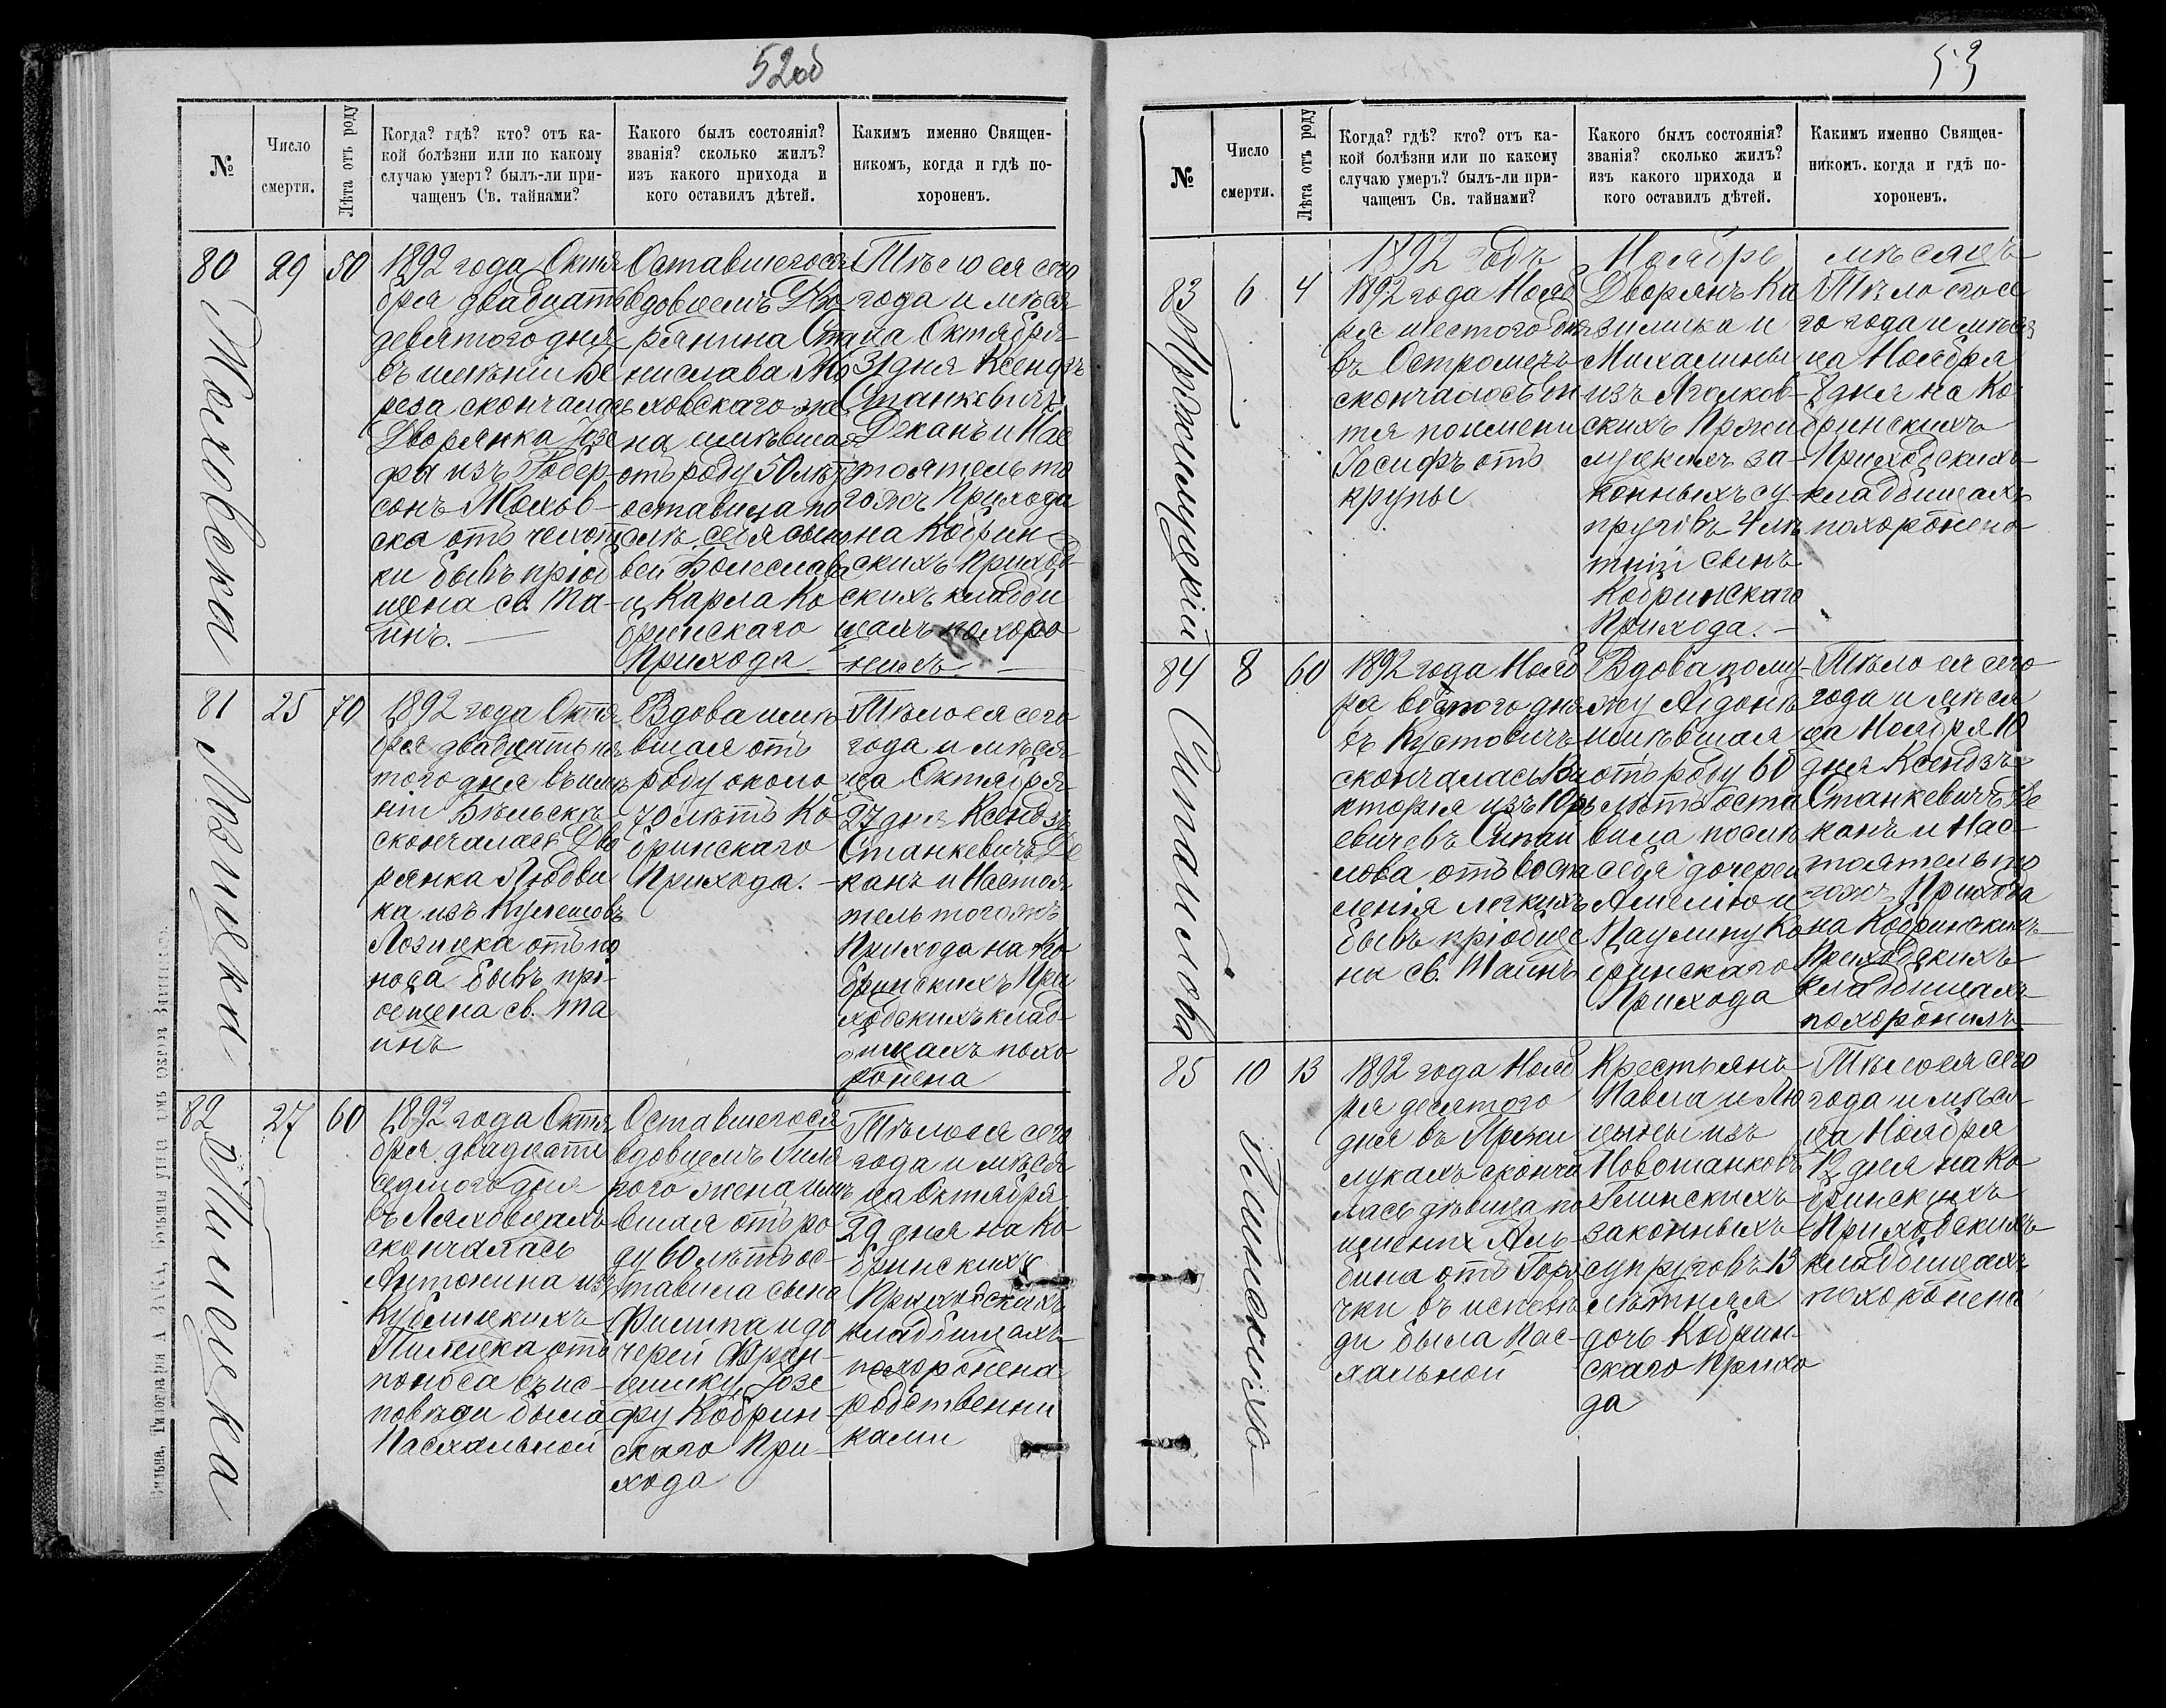 52об
№
Число
смерти.
Лѣта отъ роду
Когда? гдѣ? кто? отъ ка-
кой болѣзни или по какому
случаю умеръ? былъ-ли при-
чащенъ Св. тайнами?
Какого былъ состоянія?
званія? сколько жилъ?
изъ какого прихода и
кого оставилъ дѣтей.
Какимъ именно Священ-
никомъ, когда и гдѣ по-
хороненъ.
80
Моховска
29
50
1892 года Октя
бря двадцать
девятого дня
въ имѣніи Бе
реза скончалась
Дворянка Юзе
фа изъ Робер-
сонъ Мохов-
ска отъ чахот
ки бывъ пріоб
щена св. Та-
инъ.
Оставшегося
вдовцемъ Дво
рянина Ста
нислава Мо
ховскаго же
на имѣвшая
отъ роду 50 лѣтъ
оставила по
слѣ себя сыно
вей Болеслава
и Карла Ко
бринскаго
Прихода
Тѣло ея сего
года и мѣся
ца Октября
31 дня Ксендзъ
Станкевичъ
Деканъ и Нас
тоятель то
гожъ Прихода
на Кобрин
скихъ Приход
скихъ кладби
щахъ похоро
нилъ
81
Лозицка
25
70
1892 года Октя
бря двадцать пя
того дня въ имѣ
ніи Бѣльскъ
скончалась Дво
рянка Людви
ка изъ Кулешовъ
Лозицка отъ по
носа бывъ прі-
общена св. Та
инъ
Вдова имѣ
вшая отъ
роду около
70 лѣтъ Ко
бринскаго
Прихода.
Тѣло ея сего
года и мѣся
ца Октября
27 дня Ксендзъ
Станкевичъ Де
канъ и Настоя
тель тогожъ
Прихода на Ко
бринскихъ При
ходскихъ клад-
бищахъ похо
ронена
82
Пилецка
27
60
1892 года Октя
бря двадцать
седмого дня
въ Ляховцахъ
скончалась
Антонина изъ
Кублицкихъ
Пилецка отъ
поноса въ ис-
повѣди была
Пасхальной
Оставшегося
вдовцемъ
рого жена имѣ
вшая отъ ро
ду 60 лѣтъ ос-
тавила сына
Филипа и до
черей Фран-
цишку, Юзе
фу Кобрин-
скаго При-
хода
Тѣло ея сего
года и мѣся
ца Октября
29 дня на Ко
бринскихъ
Приходскихъ
кладбищахъ
похоронена
родственни
ками
53
№
Число
смерти.
Лѣта отъ роду
Когда? гдѣ? кто? отъ ка-
кой болѣзни или по какому
случаю умеръ? былъ-ли при-
чащенъ Св. тайнами?
Какого былъ состоянія?
званія? сколько жилъ?
изъ какого прихода и
кого оставилъ дѣтей.
Какимъ именно Священ-
никомъ. когда и гдѣ по-
хороненъ.
1892 Годъ Ноябрь мѣсяцъ
83
Пржилуцкій
6
4
1892 года Нояб
ря шестого дня
въ Остромечъ
скончалось ди
тя по имени
Іосифъ отъ
крупы
Дворянъ Ка
зимира и
Михалины
из Яголков-
скихъ Пржи
луцкихъ за-
конныхъ су-
пруговъ 4 лѣ
тній сынъ
Кобринскаго
Прихода.
Тѣло его се
го года и мѣся
ца Ноября
8 дня на Ко
бринскихъ
Приходскихъ
кладбищахъ
похоронено
84
Сипайлова
8
60
1892 года Нояб
ря восмого дня
въ Кустовичъ
скончалась Ви
кторія изъ Юрь
евичевъ Сипай
лова отъ воспа
ленія легкихъ
бывъ пріобще
на св. Таинъ
Вдова по му-
жу
имѣвшая
отъ роду 60
лѣтъ оста
вила послѣ
себя дочерей
Амелію и
Паулину Ко
бринскаго
Прихода
Тѣло ея сего
года и мѣся
ца Ноября 10
дня Ксендзъ
Станкевичъ Де
канъ и Нас-
тоятель то
гожъ Прихода
на Кобринскихъ
Приходскихъ
кладбищахъ
похоронилъ
85
Глинскихъ
10
13
1892 года Нояб
ря десятого
дня въ Пржи
лукахъ сконча
лась дѣвица по
имени Аль-
бина отъ Горя
чки въ исповѣ
ди была Пас-
хальной
Крестьянъ
Павла и Лю
цыны изъ
Новошанковъ
Глинскихъ
законныхъ
супруговъ 13
лѣтняя
дочь Кобрин-
скаго Прихо
да
Тѣло ея сего
года и мѣся-
ца Ноября
12 дня на Ко
бринскихъ
Приходскихъ
кладбищахъ
похоронена